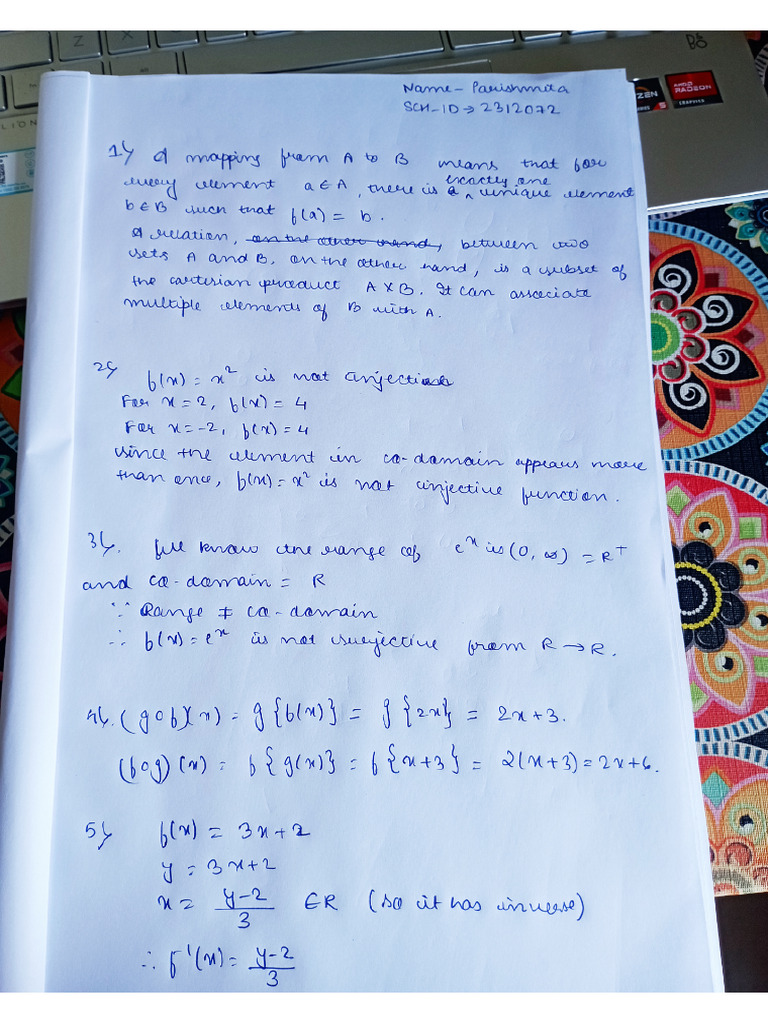 Name - Parishmita
SCH-ID → 2312072
1) A mapping from A to B means that for
every element a ∈ A, there is a exactly one unique element
b ∈ B such that f(a) = b.
A relation, on the other hand, between two
sets A and B, on the other hand, is a subset of
the cartesian product A x B. It can associate
multiple elements of B with A.
2) f(x) = x² is not injective
For x = 2, f(x) = 4
For x = -2, f(x) = 4
since the element in co-domain appears more
than once, f(x) = x² is not injective function.
3). We know the range of eˣ is (0, ∞) = R⁺
and co-domain = R
∵ Range ≠ co-domain
∴ f(x) = eˣ is not surjective from R → R.
4). (gof)(x) = g{f(x)} = g{2x} = 2x+3.
(fog)(x) = f{g(x)} = f{x+3} = 2(x+3) = 2x+6.
5) f(x) = 3x+2
y = 3x+2
x = y-2/3 ∈ R (so it has inverse)
∴ f'(x) = y-2/3
RYZEN 5
AMD RADEON
GRAPHICS
Z
X